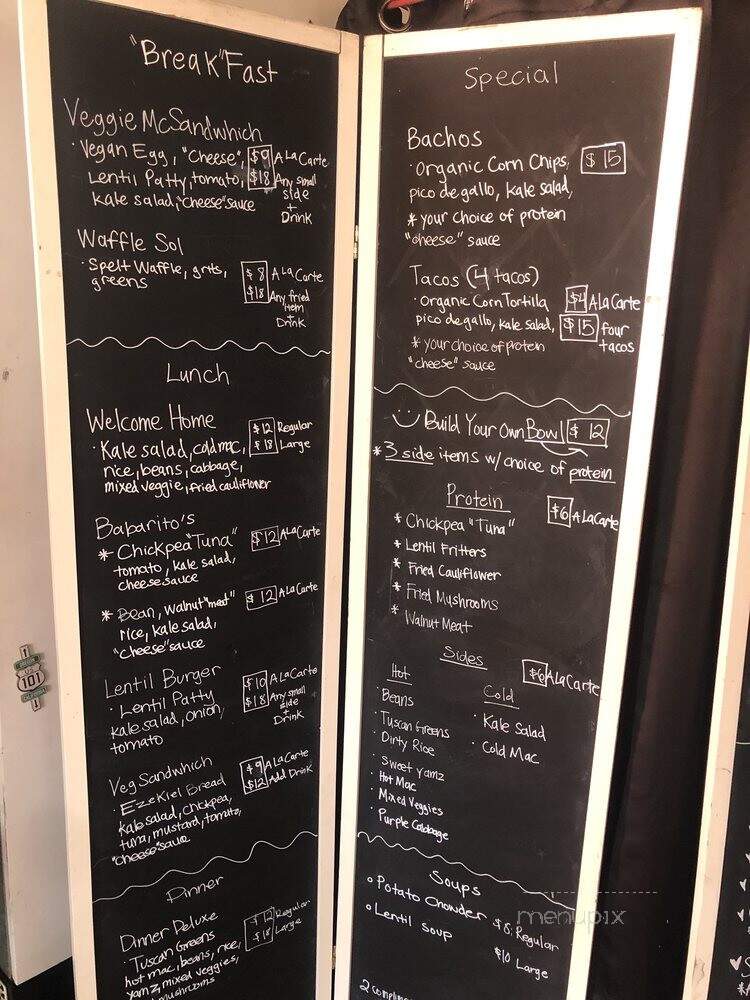 "Break"Fast
Veggie McSandwhich
· Vegan Egg, "Cheese", $9 A La Carte
Lentil Patty, tomato, $18 Any small
kale salad, "cheese" sauce side
+
Drink
Waffle Sol
· Spelt Waffle, grits, $8 A La Carte
greens $18 Any fried
item
+
Drink
Lunch
Welcome Home
· Kale salad, cold mac, $12 Regular
rice, beans, cabbage, $18 Large
mixed veggie, fried cauliflower
Babarito's
* Chickpea "Tuna" $12 A La Carte
tomato, kale salad,
cheese sauce
* Bean, walnut "meat" $12 A La Carte
rice, kale salad,
"cheese" sauce
Lentil Burger
· Lentil Patty $10 A La Carte
kale salad, onion, $18 Any small
tomato side
+
Drink
Veg Sandwhich
· Ezekiel Bread $9 A La Carte
kale salad, chickpea, $12 Add Drink
tuna, mustard, tomato,
"cheese" sauce
Dinner
Dinner Deluxe
· Tuscan Greens $12 Regular
hot mac, beans, rice, $18 Large
yamz, mixed veggies,
mushrooms
101
Special
Bachos
· Organic Corn Chips, $15
pico de gallo, kale salad,
* your choice of protein
"cheese" sauce
Tacos (4 tacos)
· Organic Corn Tortilla $4 A La Carte
pico de gallo, kale salad, $15 four
tacos
* your choice of protein
"cheese" sauce
Build Your Own Bowl $12
* 3 side items w/ choice of protein
Protein $6 A La Carte
* Chickpea "Tuna"
* Lentil Fritters
* Fried Cauliflower
* Fried Mushrooms
* Walnut Meat
Sides $6 A La Carte
Hot
· Beans
· Tuscan Greens
· Dirty Rice
· Sweet Yamz
· Hot Mac
· Mixed Veggies
· Purple Cabbage
Cold
· Kale Salad
· Cold Mac
Soups
o Potato Chowder $8 Regular
o Lentil Soup $10 Large
menupix